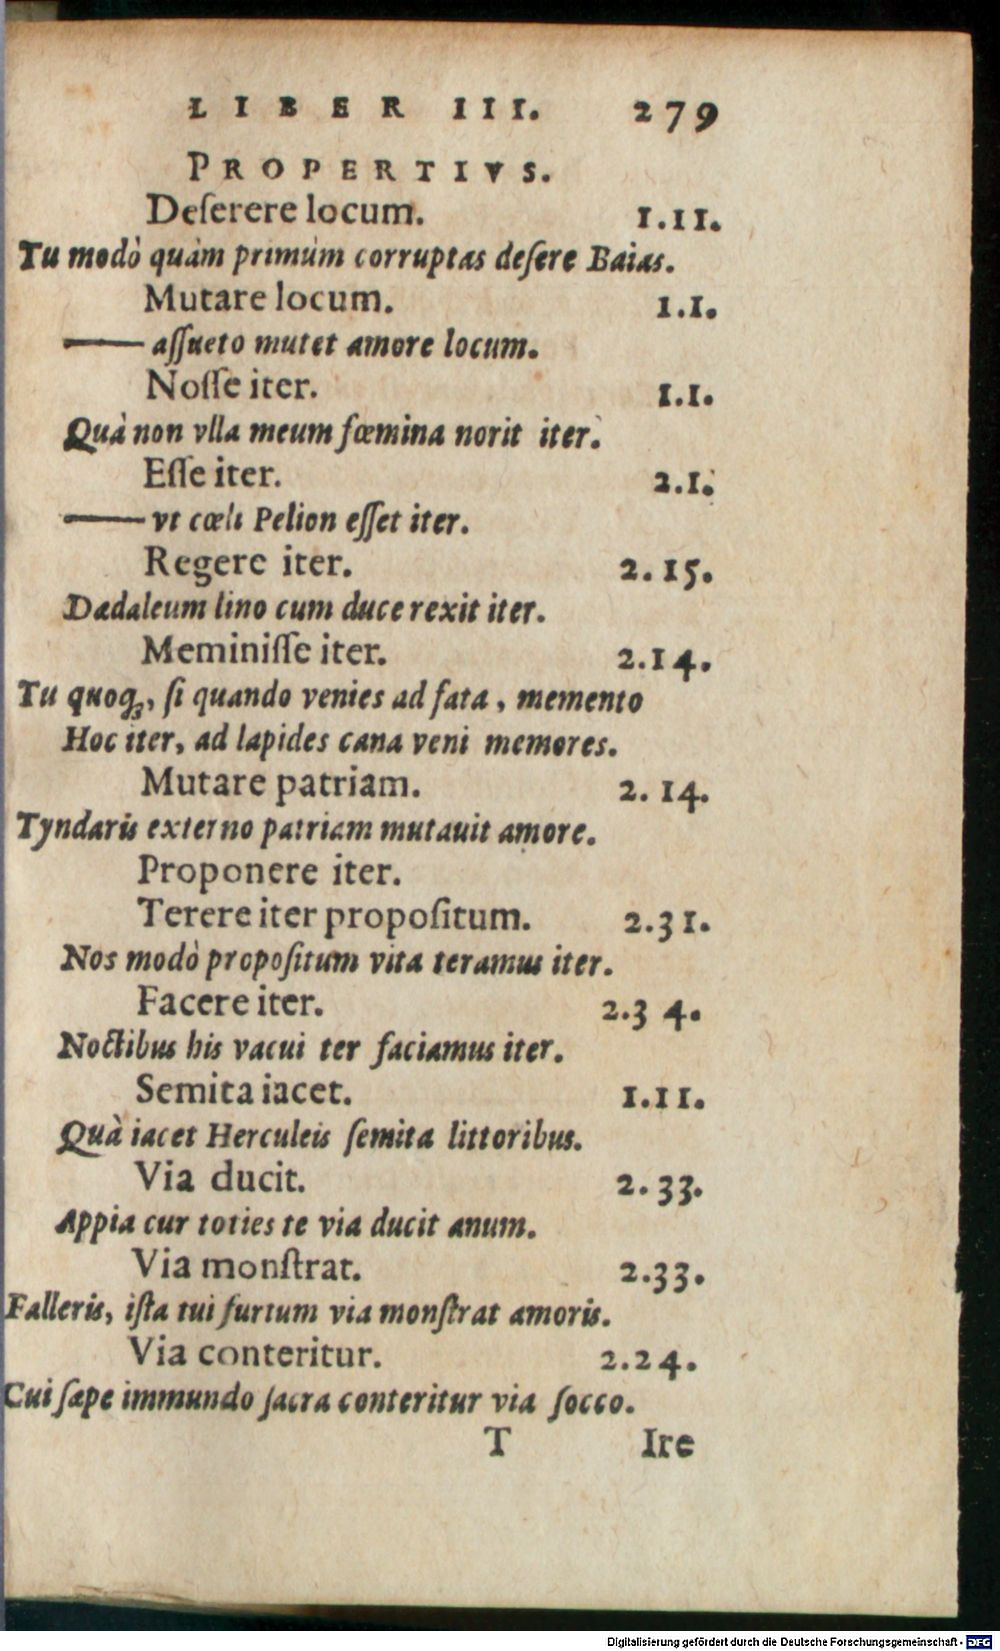 LIBER III. 279
PROPERTIVS.
Deſerere locum. 1.11.
Tu modò quàm primùm corruptas deſere Baias.
Mutare locum. 1.1.
—— aſſueto mutet amore locum.
Noſſe iter. 1.1.
Quà non vlla meum fœmina norit iter.
Eſſe iter. 2.1.
—— vt cœli Pelion eſſet iter.
Regere iter. 2.15.
Dædaleum lino cum duce rexit iter.
Meminiſſe iter. 2.14.
Tu quoqꝫ, ſi quando venies ad fata, memento
Hoc iter, ad lapides cana veni memores.
Mutare patriam. 2.14.
Tyndaris externo patriam mutauit amore.
Proponere iter.
Terere iter propoſitum. 2.31.
Nos modò propoſitum vita teramus iter.
Facere iter. 2.34.
Noctibus his vacui ter faciamus iter.
Semita iacet. 1.11.
Quà iacet Herculeis ſemita littoribus.
Via ducit. 2.33.
Appia cur toties te via ducit anum.
Via monſtrat. 2.33.
Falleris, iſta tui furtum via monſtrat amoris.
Via conteritur. 2.24.
Cui ſæpe immundo ſacra conteritur via ſocco.
T Ire
Digitalisierung gefördert durch die Deutsche Forschungsgemeinschaft - DFG